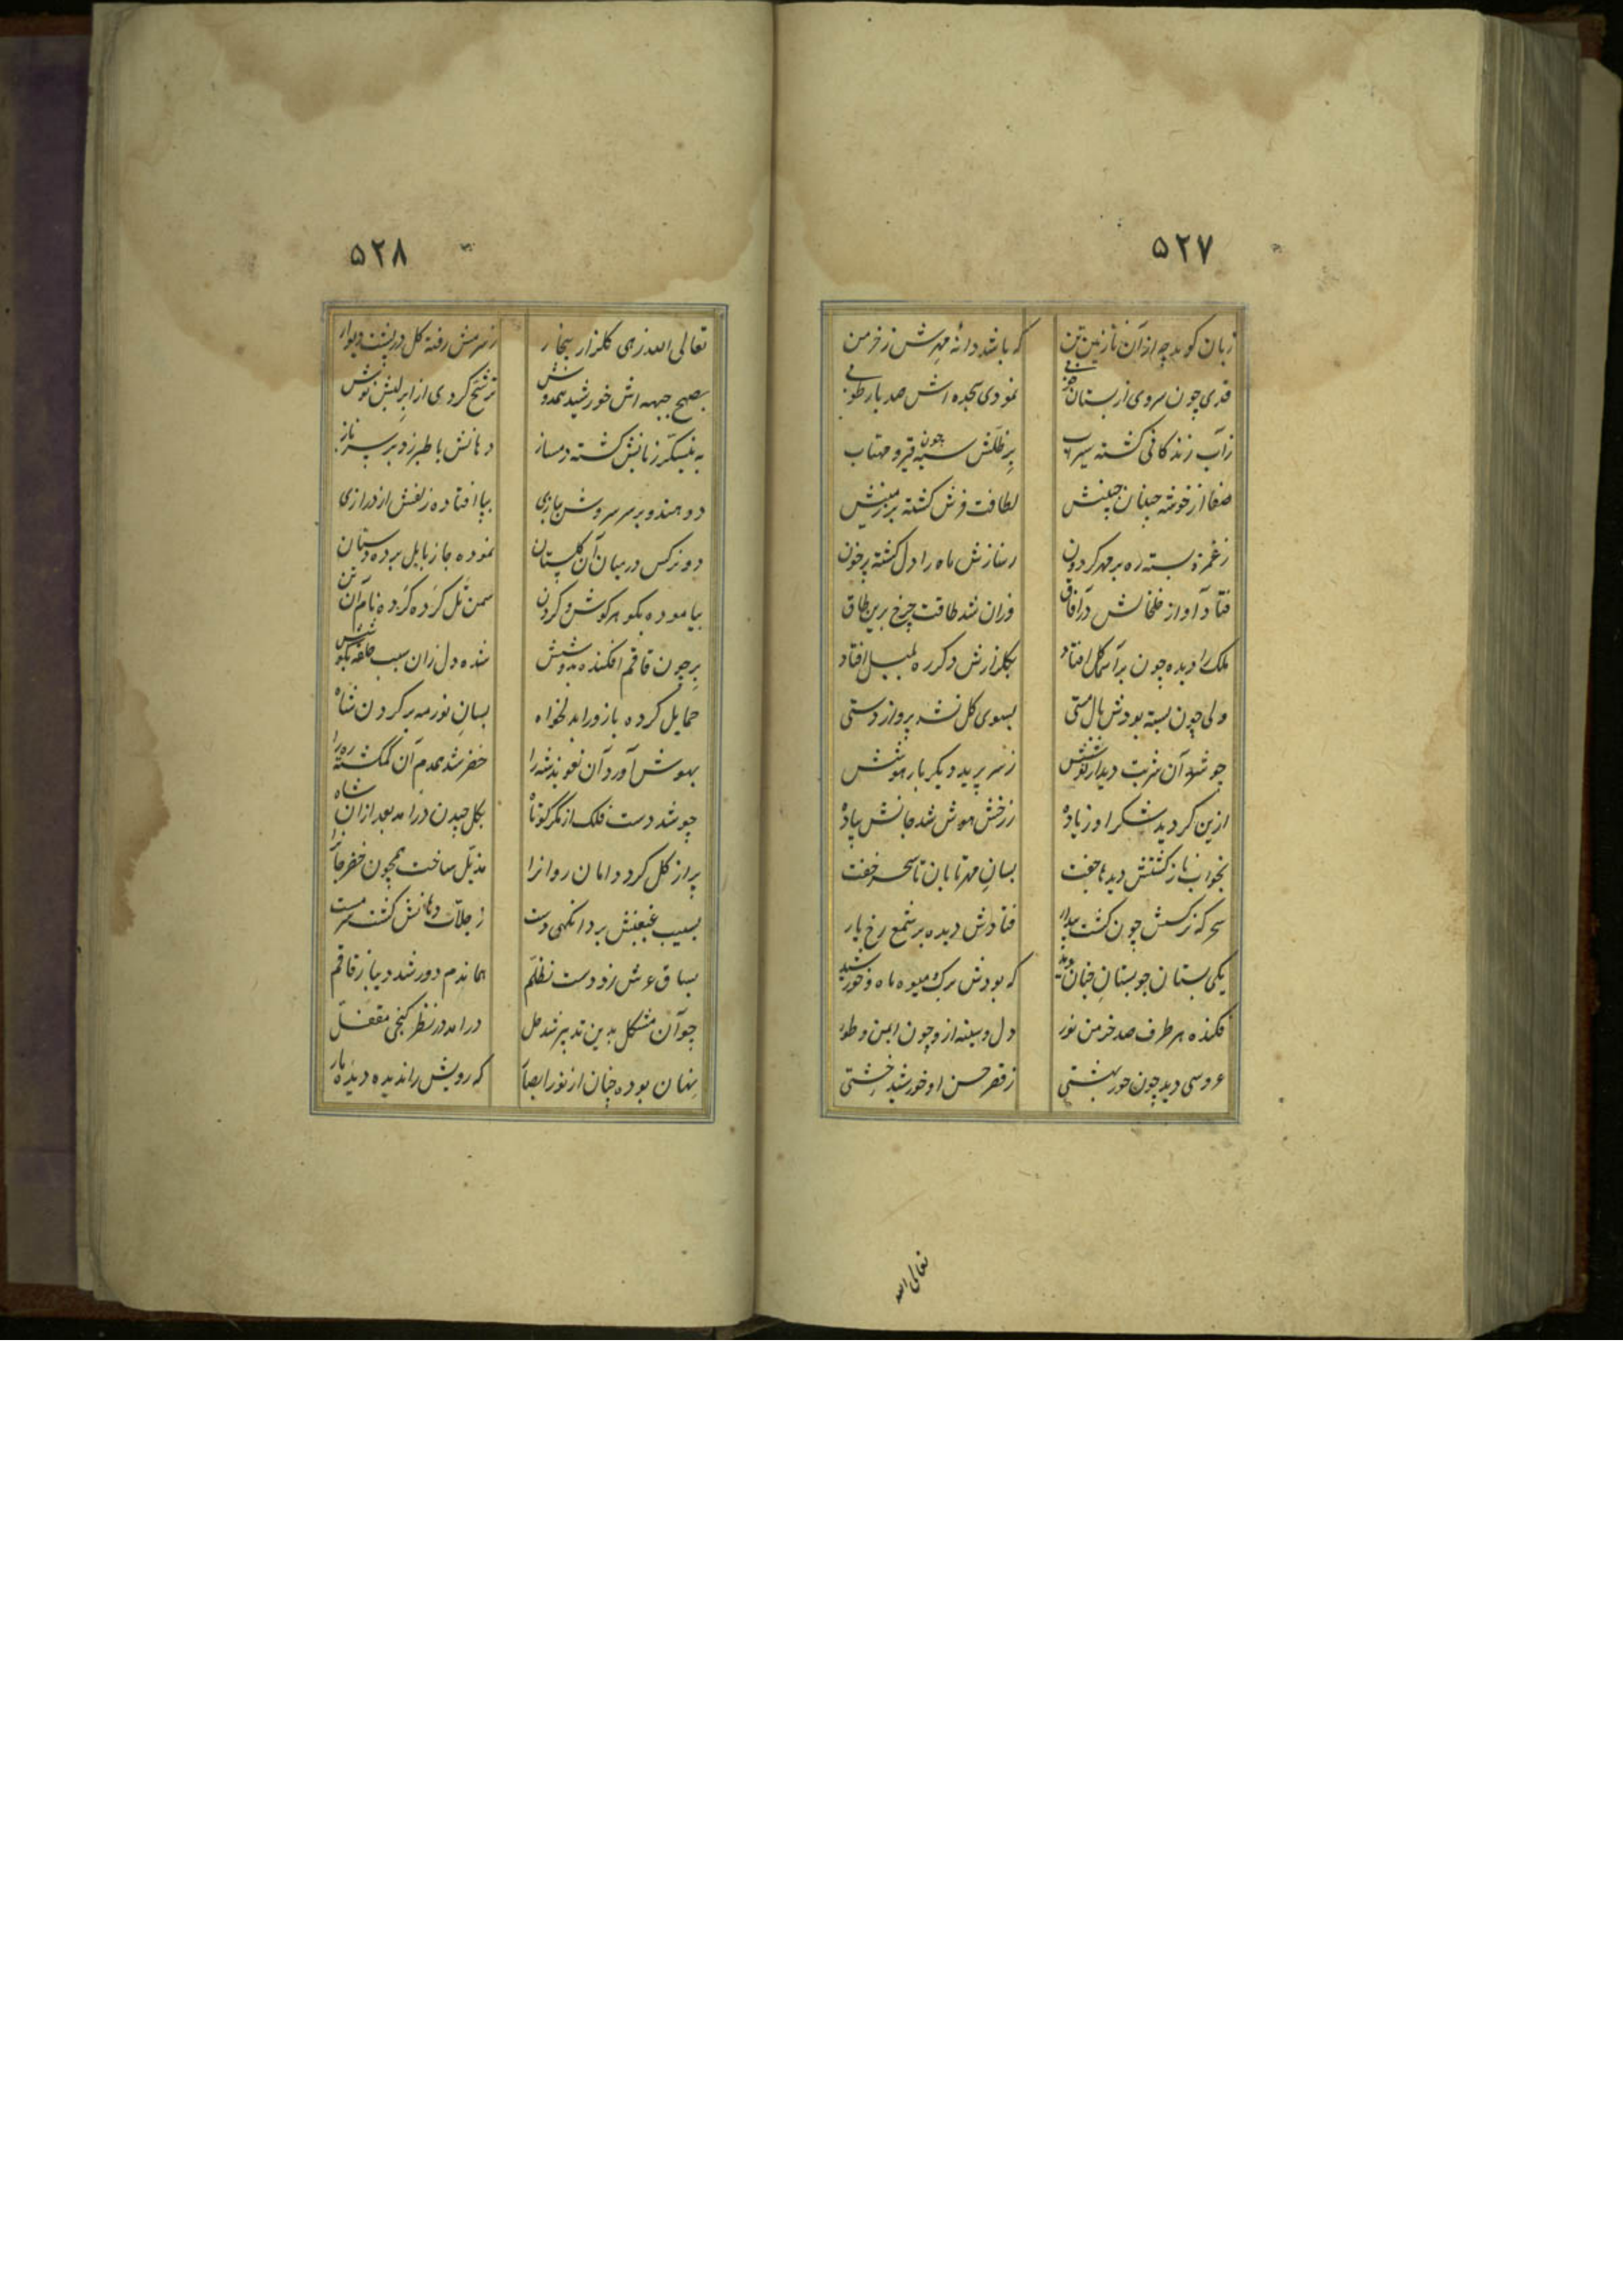 ۵۲۷
زبان کوید چه از آن نازنین تن که باشد دانه مهرش ز خرمن
قدی چون سروی از بستان نمودی سجده اش صد بار طوبی
ز آب زندکانی کشته سیراب سیه چون قیر و مهتاب
صفا از خوشه چینان جبینش لطافت فرش کشته بر زمینش
ز غمزه بسته ره بر مهر کردون ز نازش ماه را دل کشته پر خون
فتاد آواز خلخالش در آفاق وزان شد طاقت چرخ برین طاق
ملک را دیده چون بر آن کل افتاد بکلزارش دکر ره بلبل افتاد
ولی چون بسته بودش بال مستی بسوی کل نشد پرواز دستی
چو شد آن شربت دیدار نوشش ز سر پرید دیکر بار هوشش
ازین کردید شکر او زیاده ز رخش هوش شد جانش پیاده
بخواب ناز کشتش دیده ها جفت بسان مهر تابان تا سحر خفت
سحر که نرکسش چون کشت بیدار فتادش دیده بر شمع رخ یار
یکی بستان چو بستان جنان دید که بودش برک میوه ماه و خورشید
فکنده هر طرف صد خرمن نور دل و سینه ازو چون ایمن و طور
عروسی دید چون حور بهشتی ز قصر حسن او خورشید خشتی
تعالی الله
۵۲۸
تعالی الله زهی کلزار بیخار ز شرمش رفته کل در پشت دیوار
بصبح جبهه اش خورشید همدوش ترشح کردی از ابر لبش نوش
به نیشکر زبانش کشته دمساز دهانش با طبرزد بر سر ناز
دو هندو بر سر سروش ببازی بپا افتاده زلفش از درازی
دو نرکس در میان آن کلستان نموده جا ز بابل برده دستان
بیاموده بکوهر کوش و کردن سمن تل کرده کرده نام آن تن
بر چون قاقم افکنده بدوشش شده دل زان سبب حلقه بکوشش
حمایل کرده بازو را بدلخواه بسان نور مه بر کردن شاه
بهوش آورد آن تعویذ شه را خضر شد همدم آن کمکشته ره را
چو شد دست فلک از مکر کوتاه بکل چیدن درامد بعد از آن شاه
پر از کل کرد دامان روانرا مذیل ساخت همچون خضر جانرا
بسیب غبغبش برد آنکهی دست ز جلاب دهانش کشت سرمست
بساق عرش زد دست تظلم هماندم دور شد دیبا ز قاقم
چو آن مشکل بدین تدبیر شد حل درامد در نظر کنجی مقفل
نهان بوده چنان از نور ابصار که رویش را ندیده دیده یار